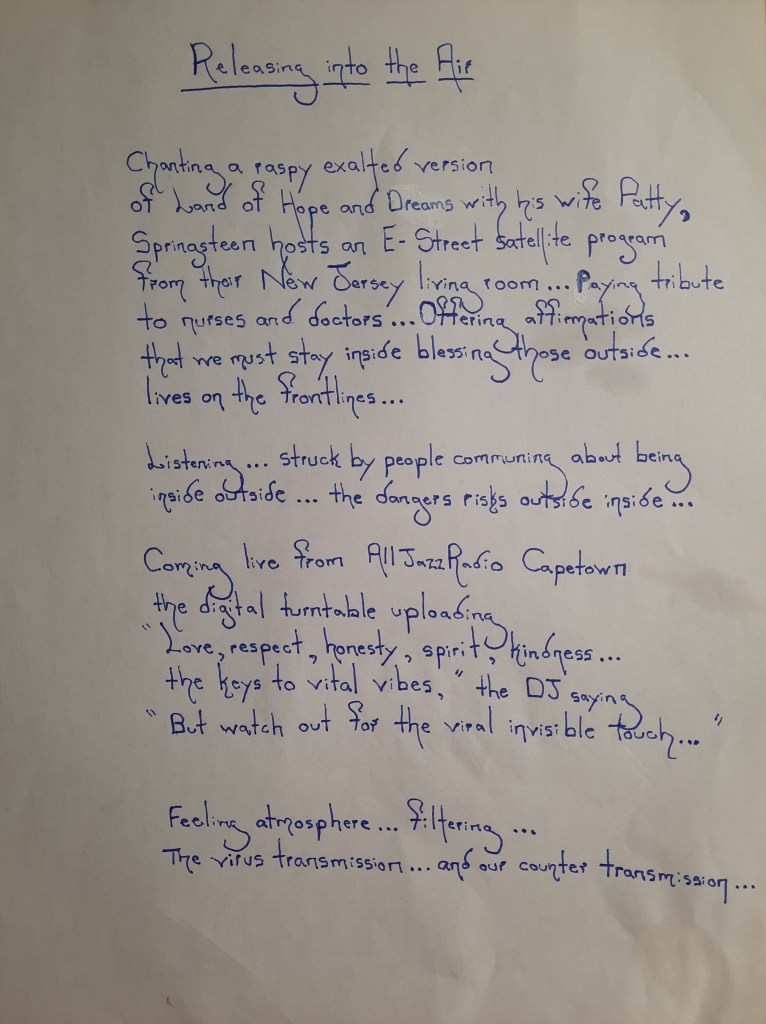 Releasing into the Air
Chanting a raspy exalted version
of Land of Hope and Dreams with his wife Patty,
Springsteen hosts an E-Street satellite program
from their New Jersey living room... Paying tribute
to nurses and doctors... Offering affirmations
that we must stay inside blessing those outside...
lives on the frontlines...
Listening... struck by people communing about being
inside outside... the dangers risks outside inside...
Coming live from All Jazz Radio Capetown
the digital turntable uploading
"Love, respect, honesty, spirit, kindness...
the keys to vital vibes," the DJ saying
"But watch out for the viral invisible touch..."
Feeling atmosphere... filtering...
The virus transmission... and our counter transmission...